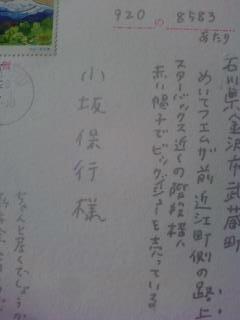 920の8583
あたり
石川県金沢市武蔵町
めいてつエムザ前 近江町側の路上
スターバックス近くの階段横へ
赤い帽子でビッグイシューを売っている
小坂保行様
ちゃんと届くでしょうか